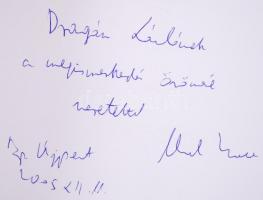 Dragán Lászlónak
a megismerkedés örömére
szeretettel
Bp. Újpest
2005 XII. 11.